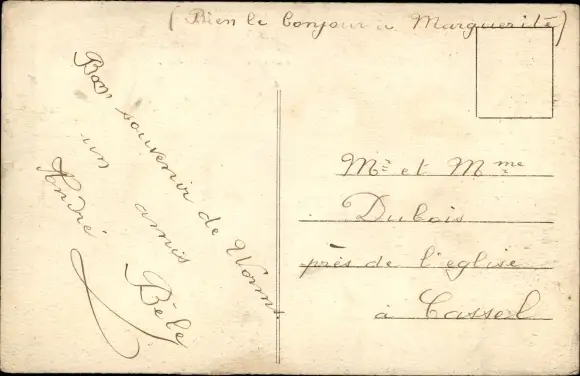 (Bien le bonjour à Marguerite)
Bon souvenir de Worms.
un amis Bèle
André
Mr et Mme
Dubois
près de l'eglise
à Cassel